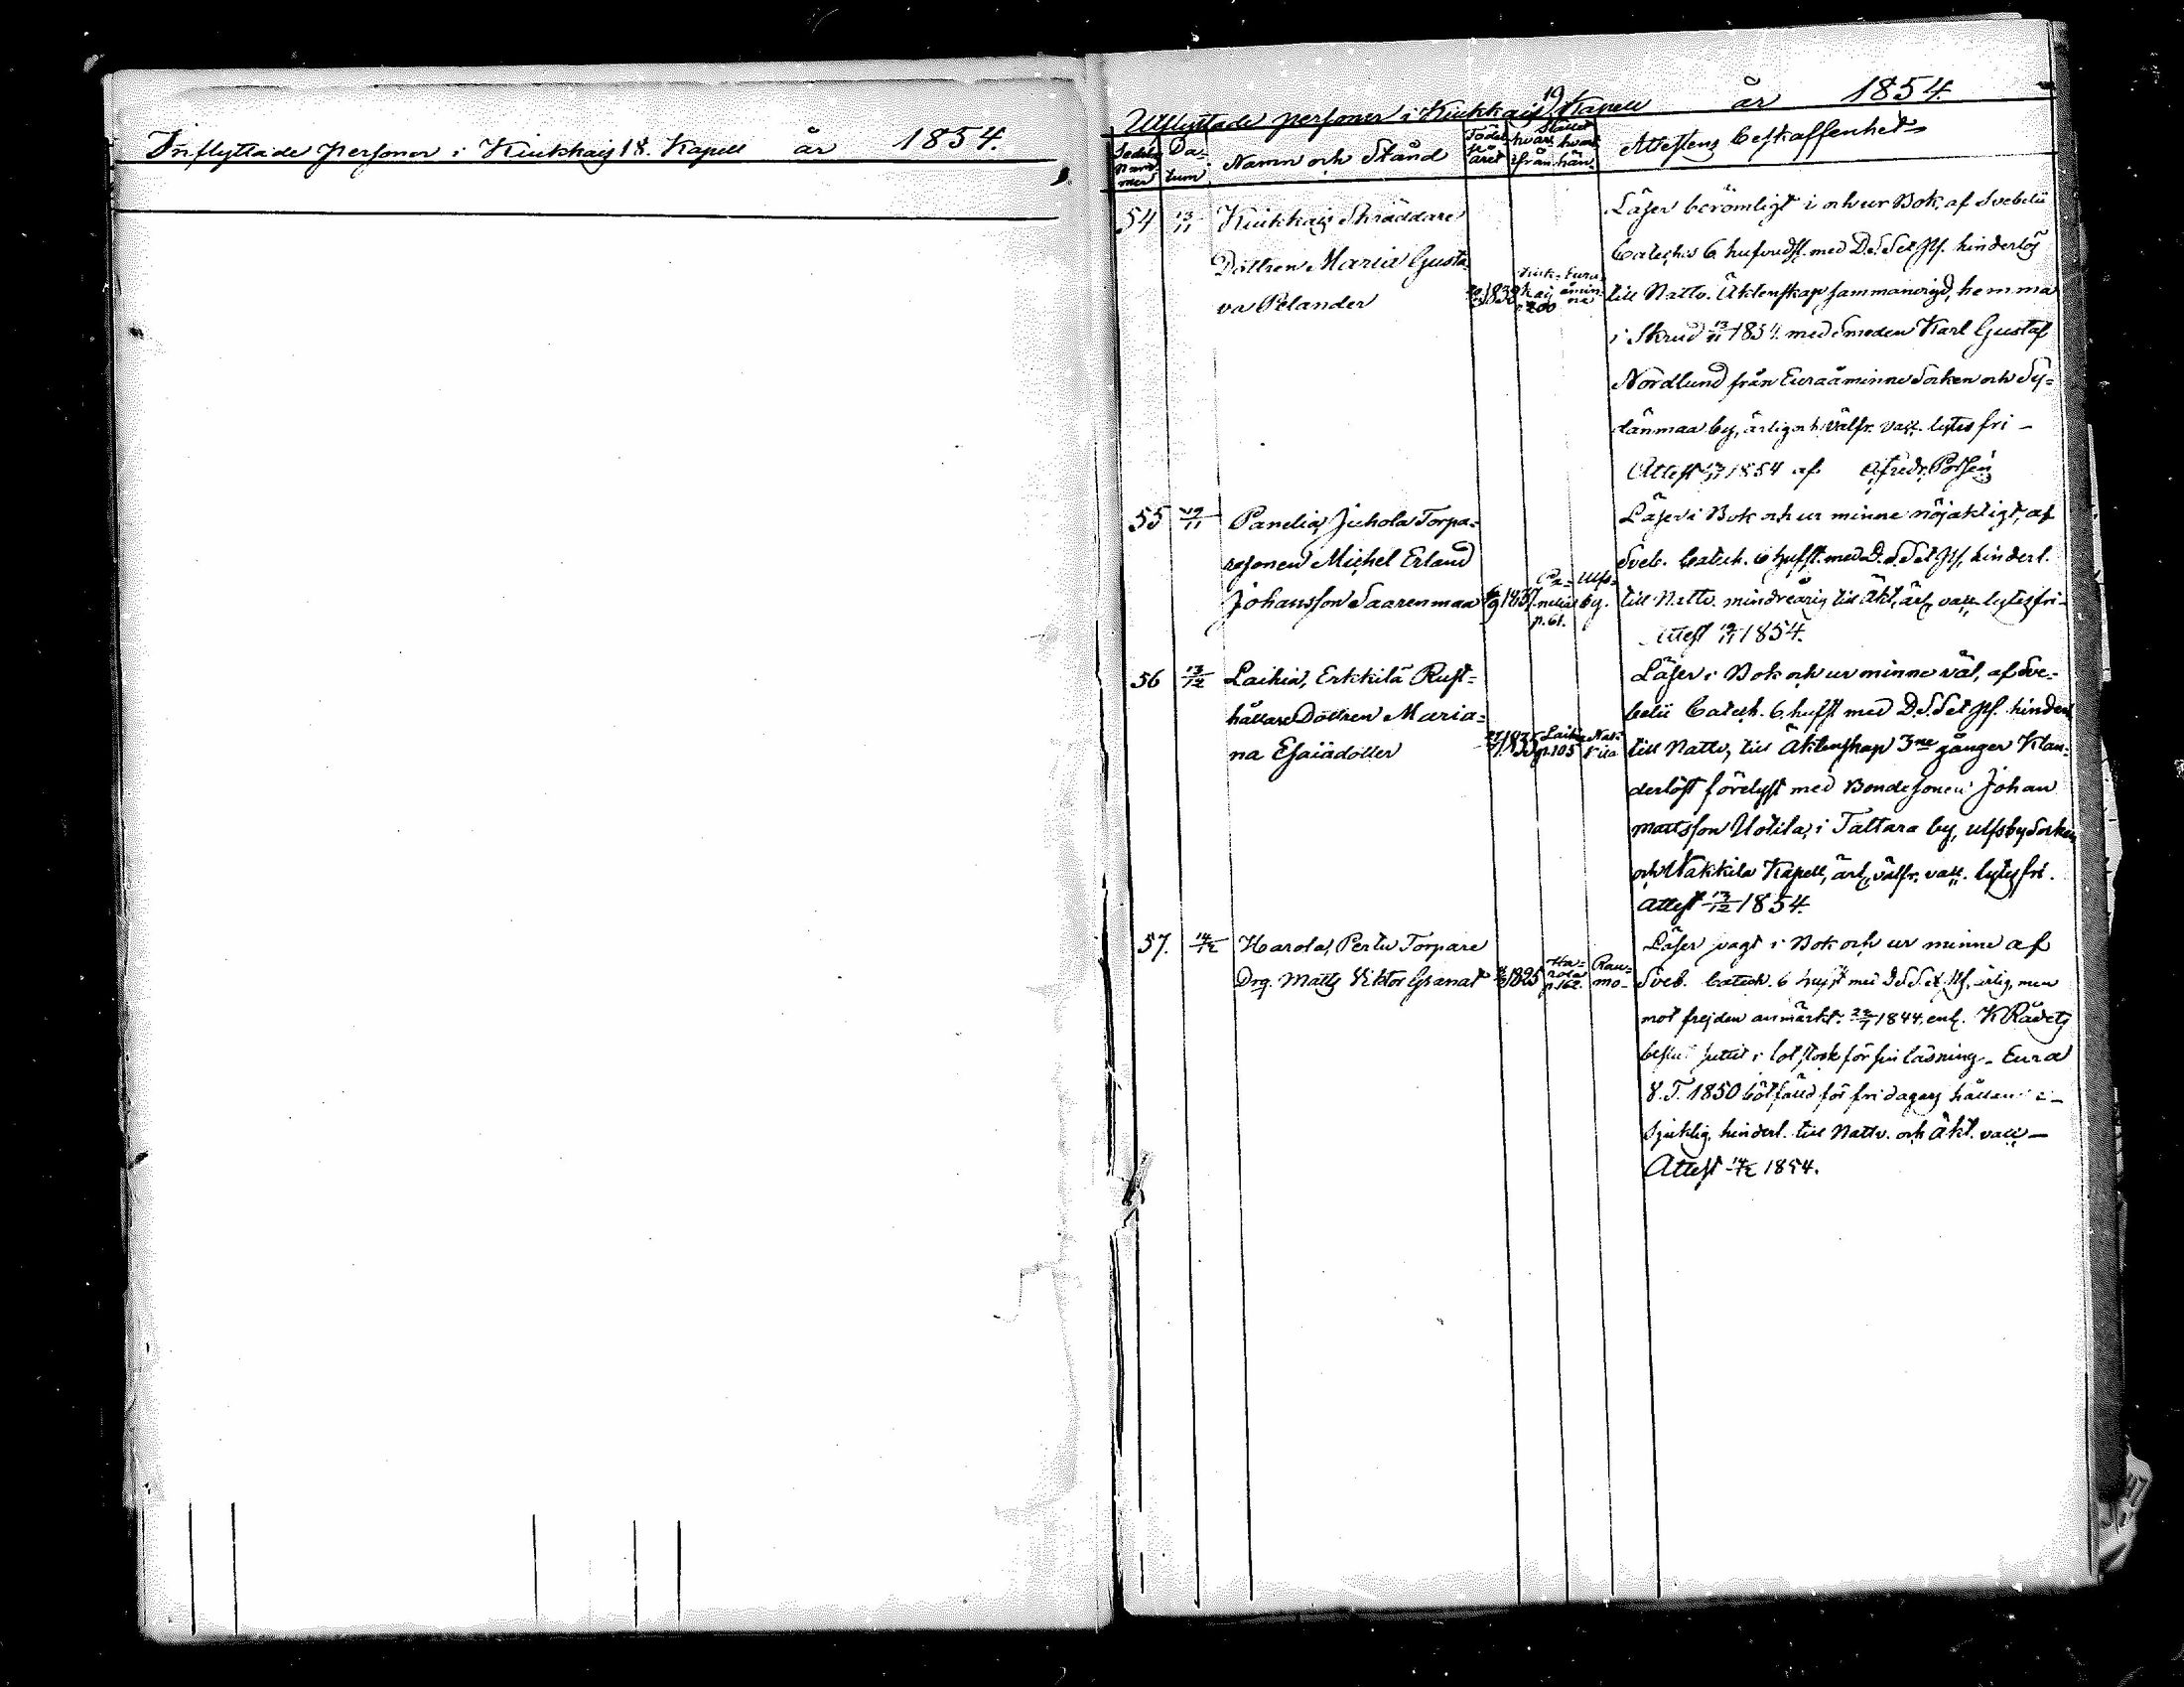 Inflyttade Personer i Kiukkais 18. Kapell år 1854.
19
Utflyttade personer i Kiukkais Kapell år 1854.
Sedel Nummer
Datum
Namn och Stånd
Födelse året
Stället
hvar ifrån
hvart hän
Attestens beskaffenhet
54 13/11 Kiukkais Skräddare
Dottren Maria Gusta-
va Pelander 1838 Kiuk-kais p 200 Eura-åmin-ne
Läser berömligt i och ur Bok, af Svebelii
Cateches 6 hufvudst. med D. S. Set Ps. hinderlös
till Nattv. Äktenskap sammanvigd, hemma
i Skrud 13/11 1854 med Smeden Karl Gustaf
Nordlund från Euraåminne Socken och Sy-
dänmaa by, ärlig och välfr. vacc. lytesfri –
Attest 13/11 1854 af
55 19/11 Panelia, Juhola Torpa-
resonen Michel Erland
Johansson Saarenmaa 1837 Pa-nelia p. 61. Ulfs-by.
Läser i Bok och ur minne nöjaktigt, af
Sveb. Catech. 6 hufst. med D. S. Set Ps, hinderl.
till Nattv. minderårig till Äkt, ärl, vacc lytesfri –
Attest 19/11 1854.
56 13/12 Laihia, Erkkilä Rust-
hållare Dottren Maria-
na Esaiädotter 1835 Laihia p. 105 Nak-kila
Läser i Bok och ur minne väl, af Sve-
belii Catech. 6 hufst med D. S. Set Ps. hinderl
till Nattv, till Äktenskap 3ne gånger Klan-
derlöst förelyst med Bondesonen Johan
Mattsson Uotila, i Tattara by, Ulfsby Socken
och Nakkila Kapell, ärl, välfr. vacc. lytesfri.
Attest 13/12 1854.
57. 14/12 Harola, Perttu Torpare
Drg. Matts Viktor Granat 1825 Ha-rola p. 162. Rau-mo
Läser svagt i Bok och ur minne af
Sveb. Catech. 6 hufst med D. S. Set. Ps, ärlig, men
mot frejden anmärkt: 1844, enl. K Rådets
beslut suttit i fotstock för sin läsning – Eura
V. T. 1850 bötfälld för fridagars hållan
Sjuklig, hinderl. till Nattv. och Äkt. vacc –
Attest 14/12 1854.